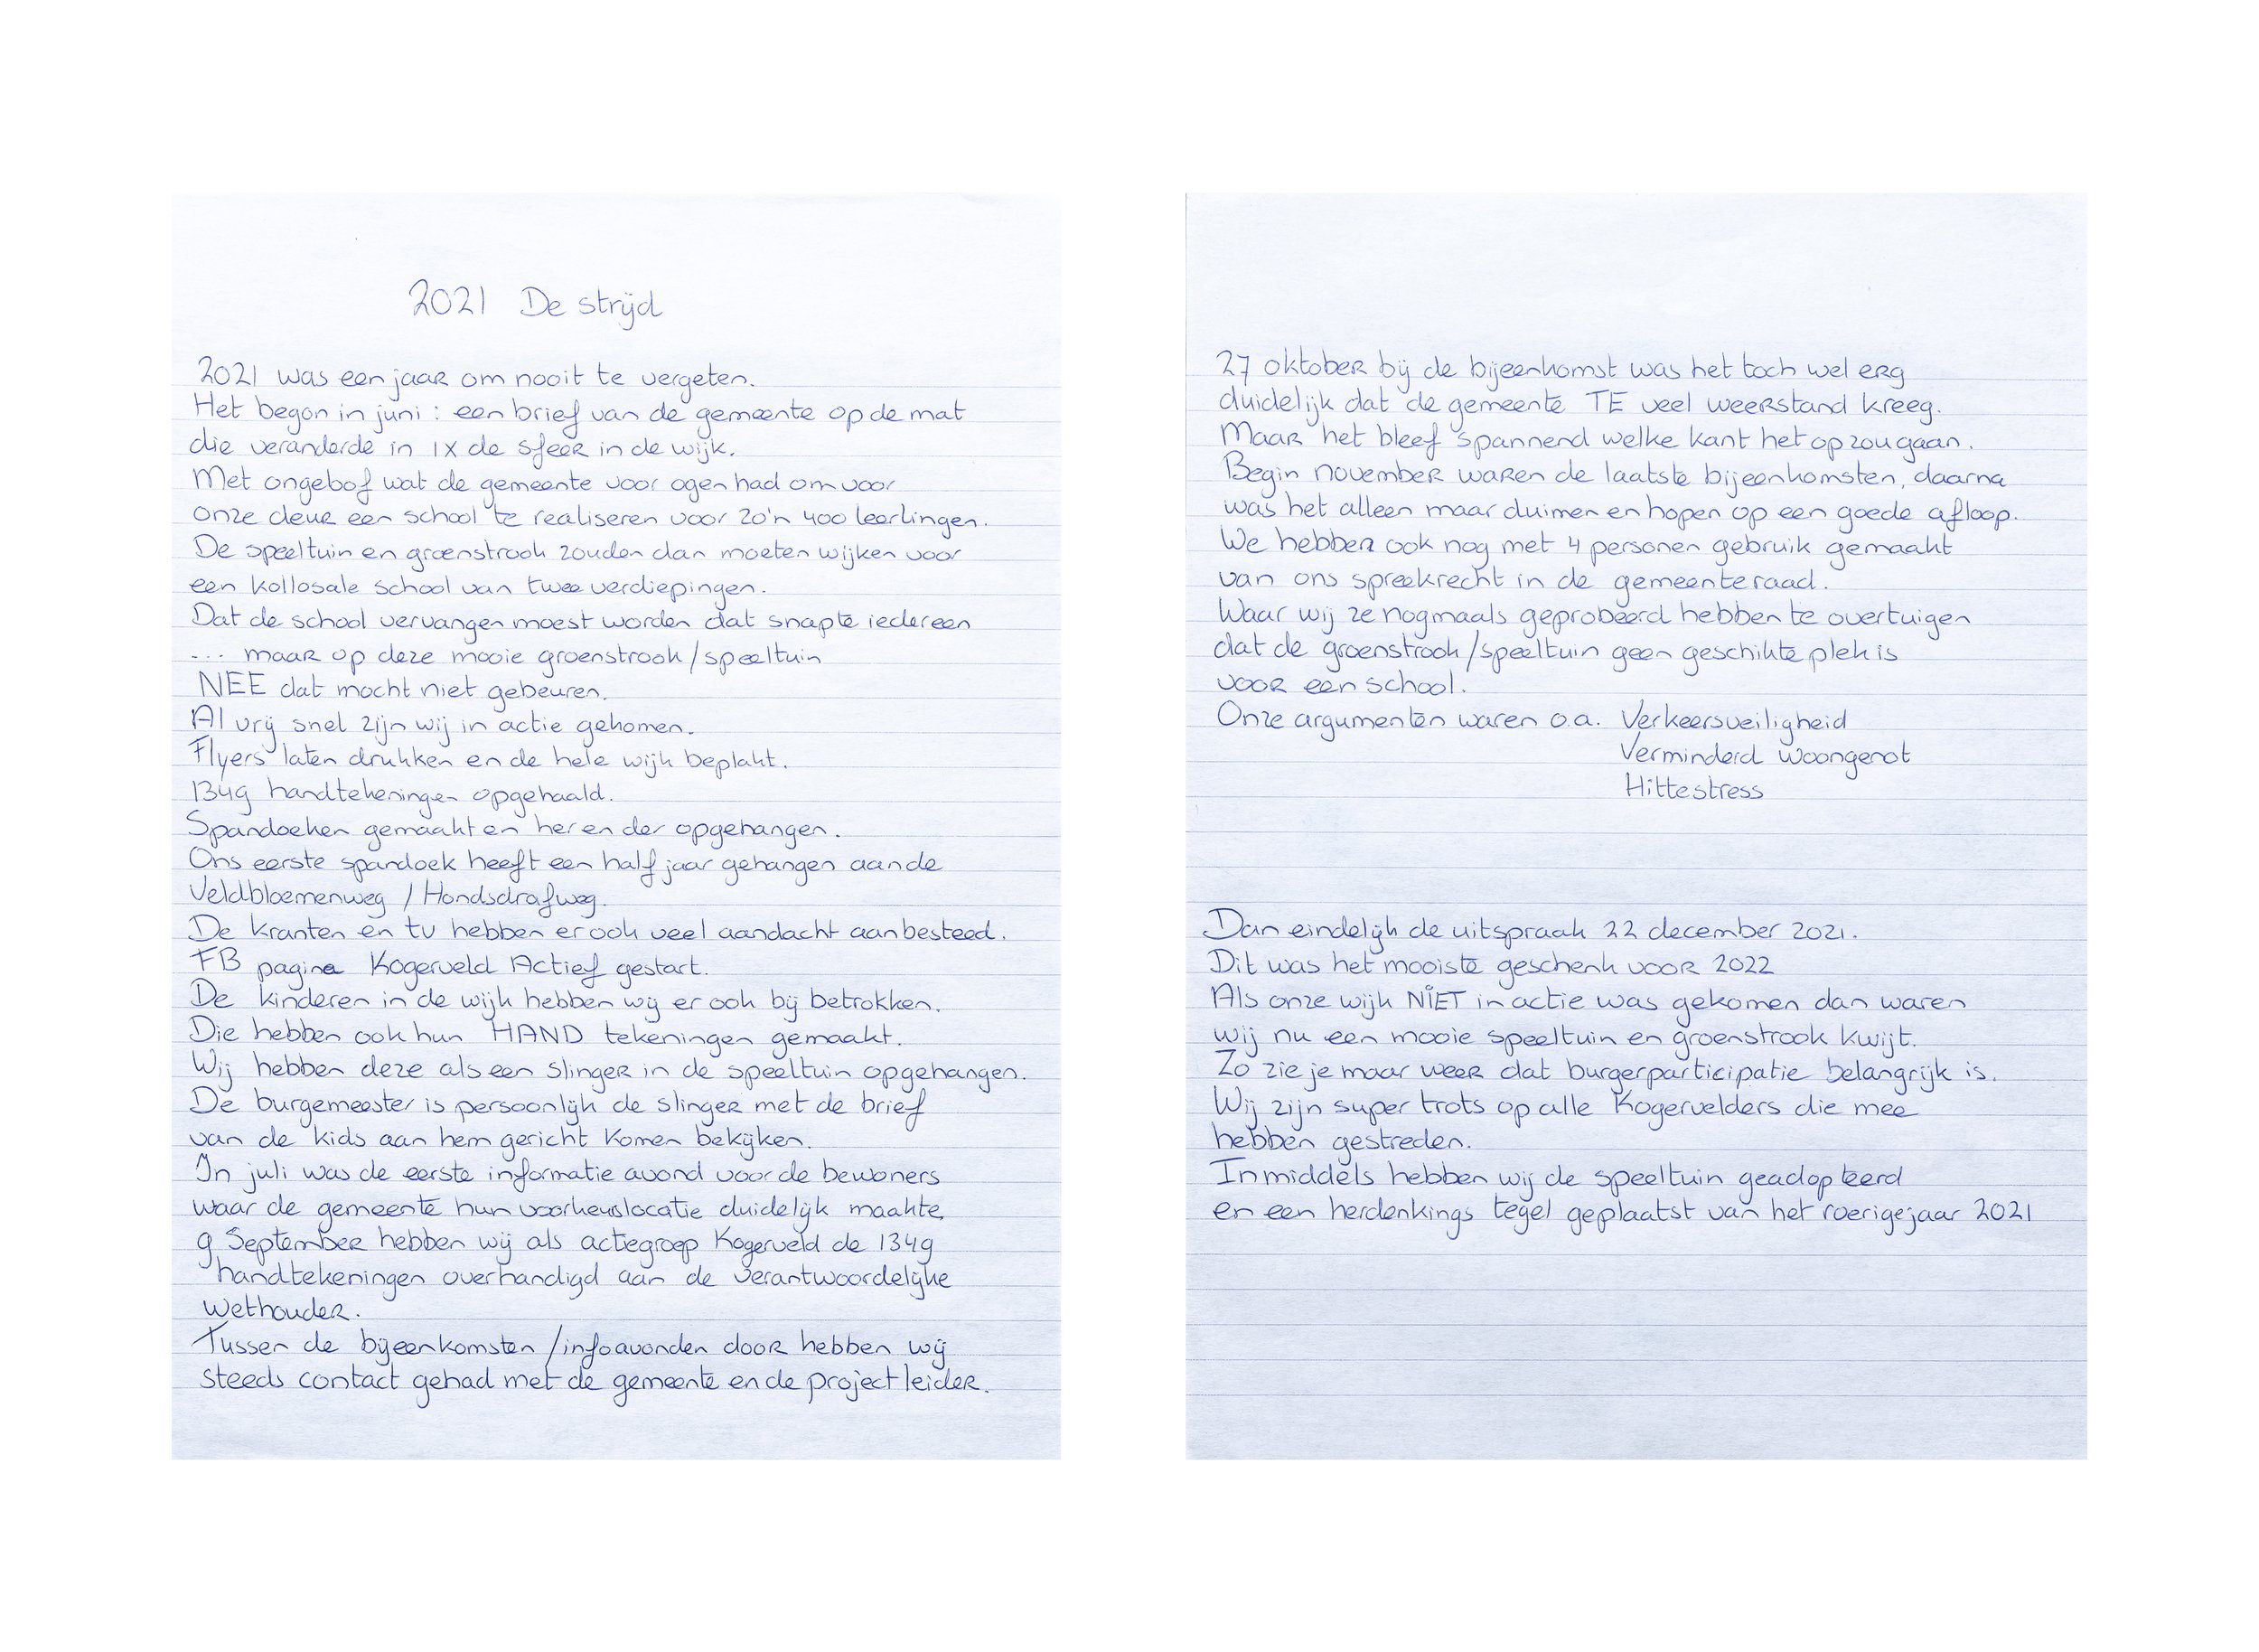 2021 De strijd
2021 was een jaar om nooit te vergeten.
Het begon in juni : een brief van de gemeente op de mat
die veranderde in 1x de sfeer in de wijk.
Met ongelof wat de gemeente voor ogen had om voor
onze deur een school te realiseren voor zo'n 400 leerlingen.
De speeltuin en groenstrook zouden dan moeten wijken voor
een kollosale school van twee verdiepingen.
Dat de school vervangen moest worden dat snapte iedereen
... maar op deze mooie groenstrook/speeltuin
NEE dat mocht niet gebeuren.
Al vrij snel zijn wij in actie gekomen.
Flyers laten drukken en de hele wijk beplakt.
1349 handtekeningen opgehaald.
Spandoeken gemaakt en her en der opgehangen.
Ons eerste spandoek heeft een half jaar gehangen aan de
Veldbloemenweg / Hondsdrafweg.
De kranten en tv hebben er ook veel aandacht aan besteed.
FB pagina Kogerveld Actief gestart.
De kinderen in de wijk hebben wij er ook bij betrokken.
Die hebben ook hun HAND tekeningen gemaakt.
Wij hebben deze als een slinger in de speeltuin opgehangen.
De burgemeester is persoonlijk de slinger met de brief
van de kids aan hem gericht komen bekijken.
In juli was de eerste informatie avond voor de bewoners
waar de gemeente hun voorkeurslocatie duidelijk maakte.
9 September hebben wij als actiegroep Kogerveld de 1349
handtekeningen overhandigd aan de verantwoordelijke
wethouder.
Tussen de bijeenkomsten /infoavonden door hebben wij
steeds contact gehad met de gemeente en de projectleider.
27 oktober bij de bijeenkomst was het toch wel erg
duidelijk dat de gemeente TE veel weerstand kreeg.
Maar het bleef spannend welke kant het op zou gaan.
Begin november waren de laatste bijeenkomsten, daarna
was het alleen maar duimen en hopen op een goede afloop.
We hebben ook nog met 4 personen gebruik gemaakt
van ons spreekrecht in de gemeenteraad.
Waar wij ze nogmaals geprobeerd hebben te overtuigen
dat de groenstrook/speeltuin geen geschikte plek is
voor een school.
Onze argumenten waren o.a. Verkeersveiligheid
Verminderd woongenot
Hittestress
Dan eindelijk de uitspraak 22 december 2021.
Dit was het mooiste geschenk voor 2022
Als onze wijk NIET in actie was gekomen dan waren
wij nu een mooie speeltuin en groenstrook kwijt.
Zo zie je maar weer dat burgerparticipatie belangrijk is.
Wij zijn super trots op alle Kogervelders die mee
hebben gestreden.
Inmiddels hebben wij de speeltuin geadopteerd
en een herdenkings tegel geplaatst van het roerige jaar 2021